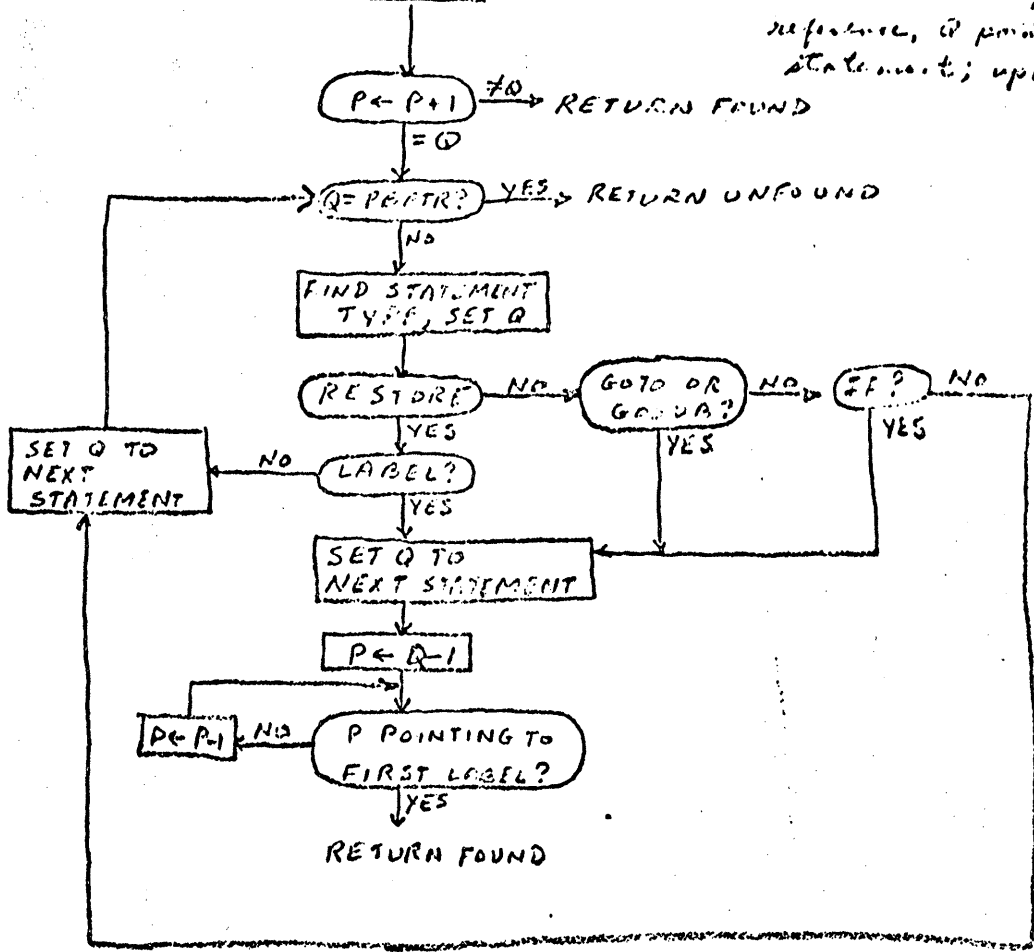 reference, Q
statement;
P ← P+1
≠Q
RETURN FOUND
= Q
Q = PBPTR?
YES
RETURN UNFOUND
NO
FIND STATEMENT
TYPE, SET Q
RESTORE
NO
GOTO OR
GOSUB?
NO
IF?
NO
YES
YES
YES
SET Q TO
NEXT
STATEMENT
NO
LABEL?
YES
SET Q TO
NEXT STATEMENT
P ← Q-1
P ← P-1
NO
P POINTING TO
FIRST LABEL?
YES
RETURN FOUND